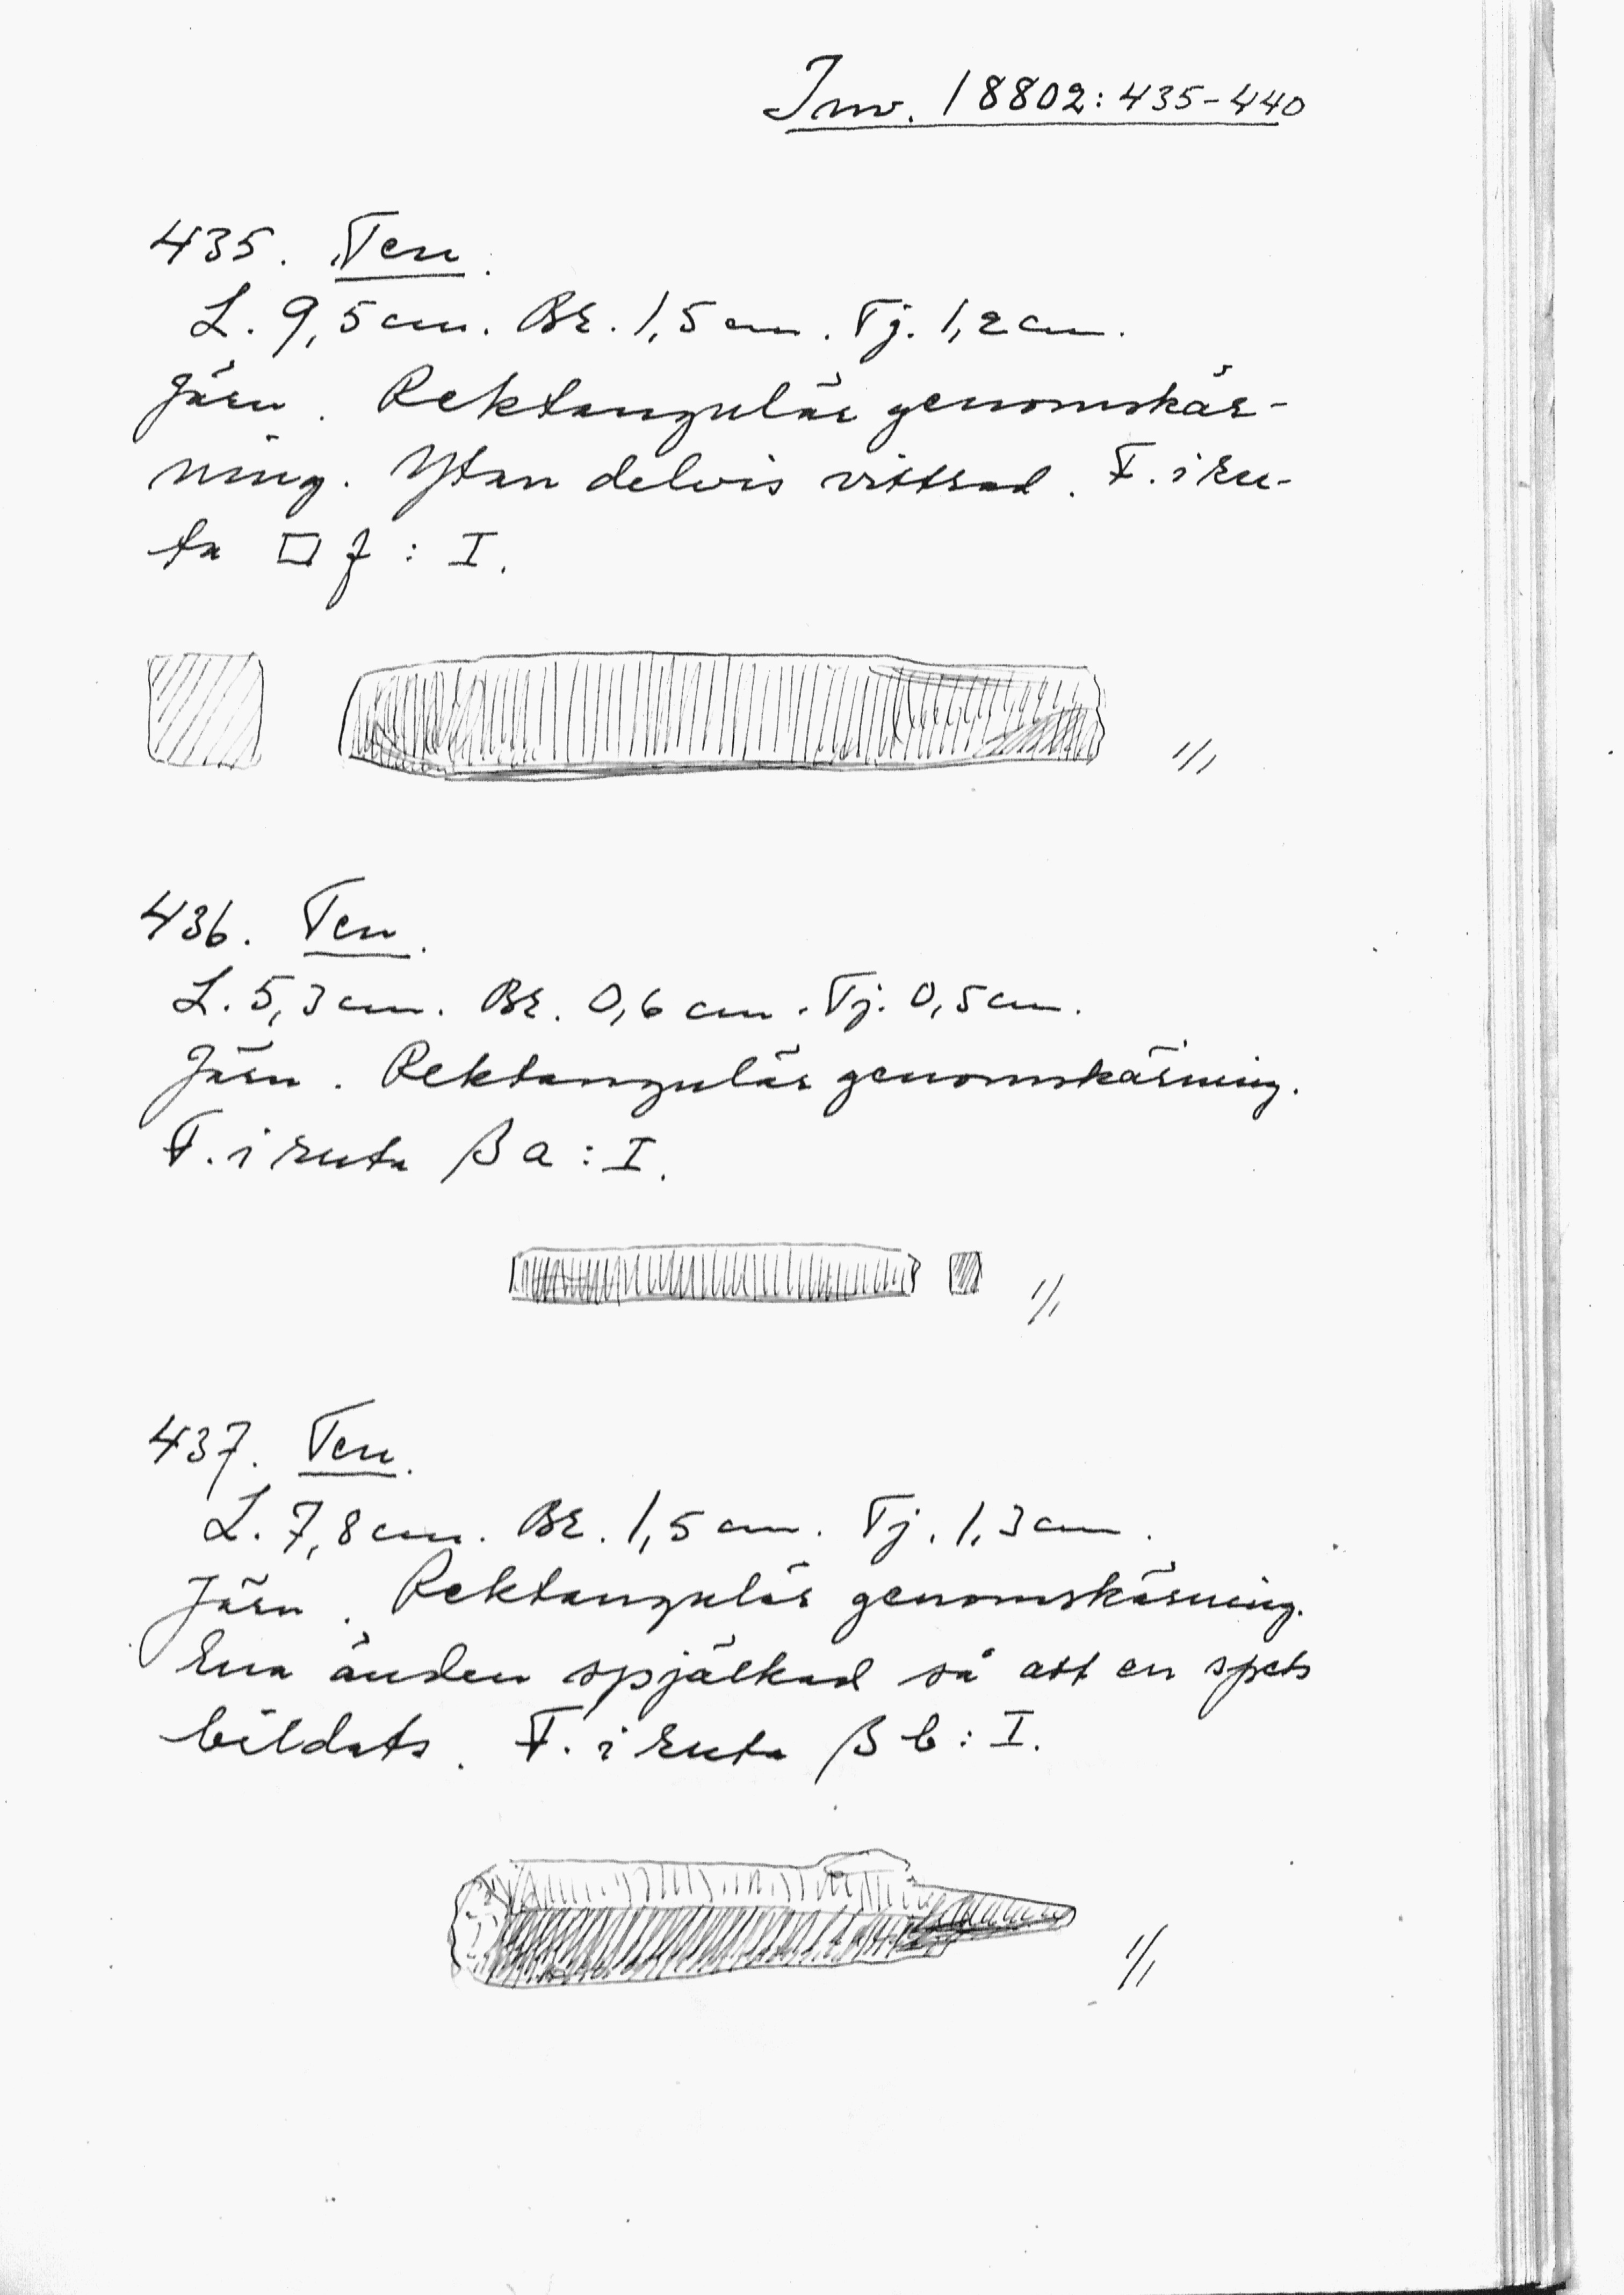 Inv. 18802:435-440
435. Ten.
L. 9,5 cm. Br. 1,5 cm. Tj. 1,2 cm.
Järn. Rektangulär genomskär-
ning. Ytan delvis vittrad. F. i ru-
ta □ f : I.
1/1
436. Ten.
L. 5,3 cm. Br. 0,6 cm. Tj. 0,5 cm.
Järn. Rektangulär genomskärning.
F. i ruta β a : I.
1/1
437. Ten.
L. 7,8 cm. Br. 1,5 cm. Tj. 1,3 cm.
Järn. Rektangulär genomskärning.
Ena änden spjälkad så att en spets
bildats. F. i ruta β b : I.
1/1